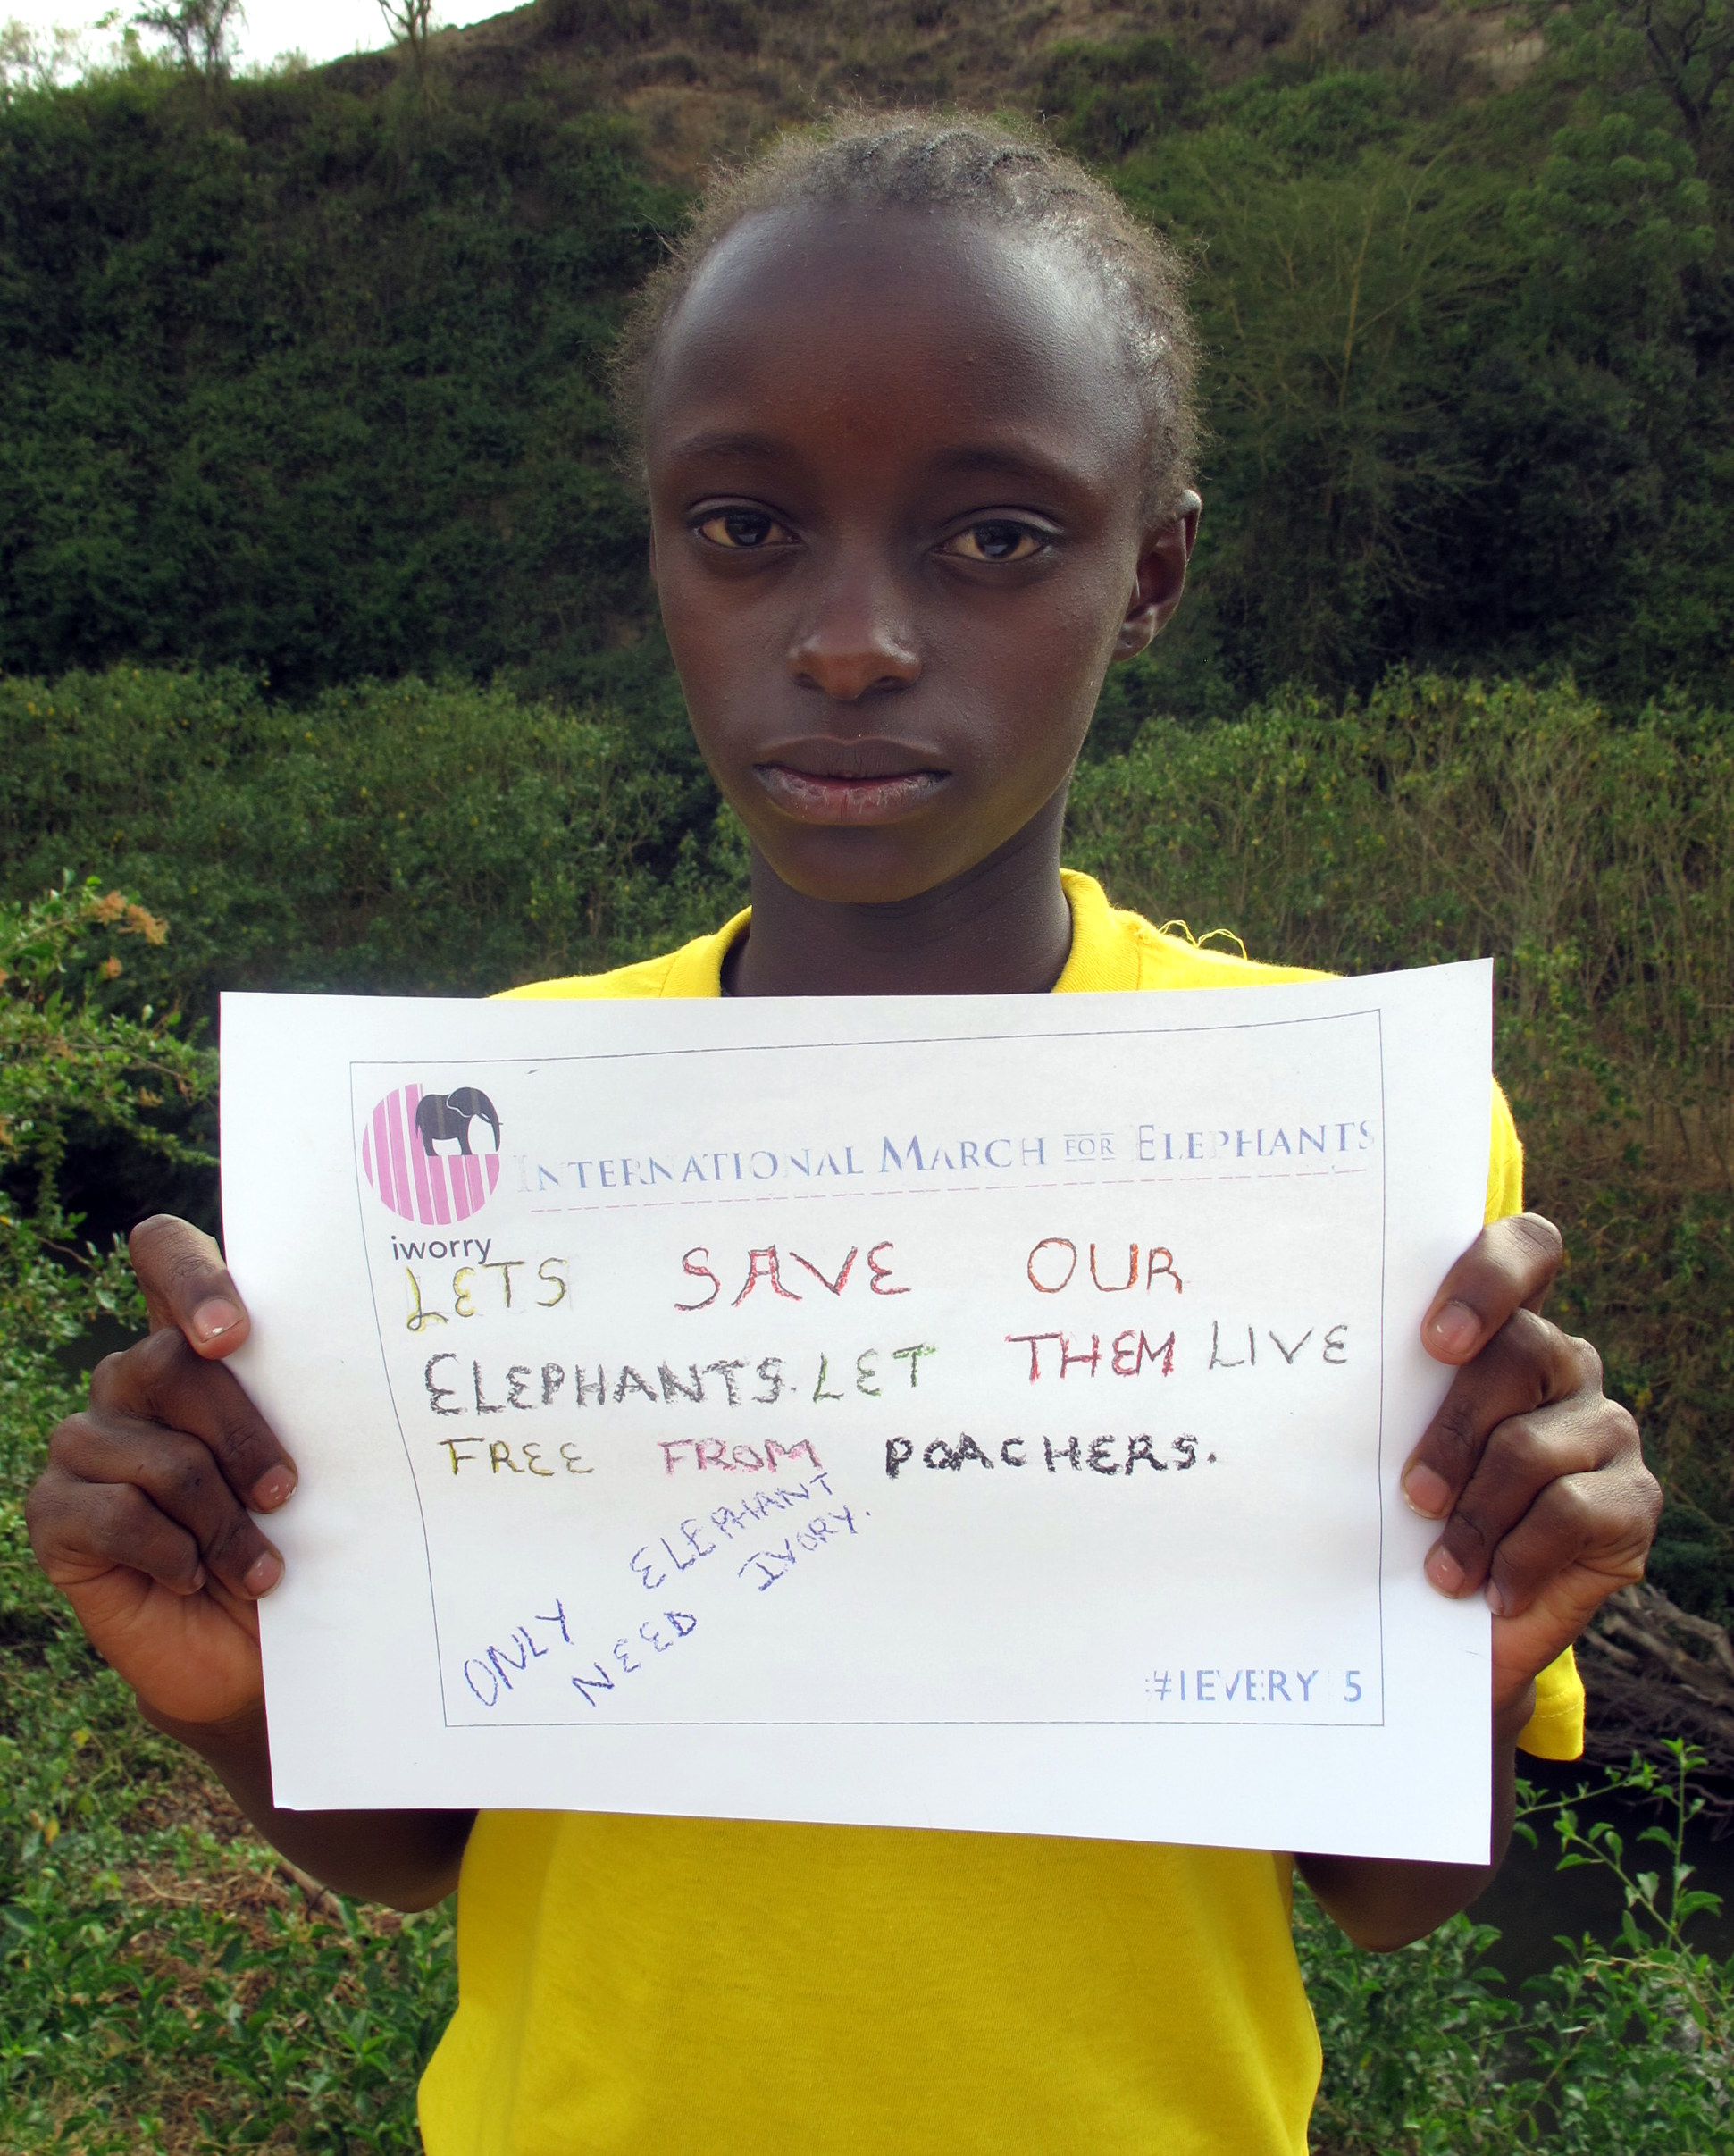 INTERNATIONAL MARCH FOR ELEPHANTS
iworry
LETS SAVE OUR
ELEPHANTS. LET THEM LIVE
FREE FROM POACHERS.
ONLY ELEPHANT
NEED IVORY.
#IEVERY 5